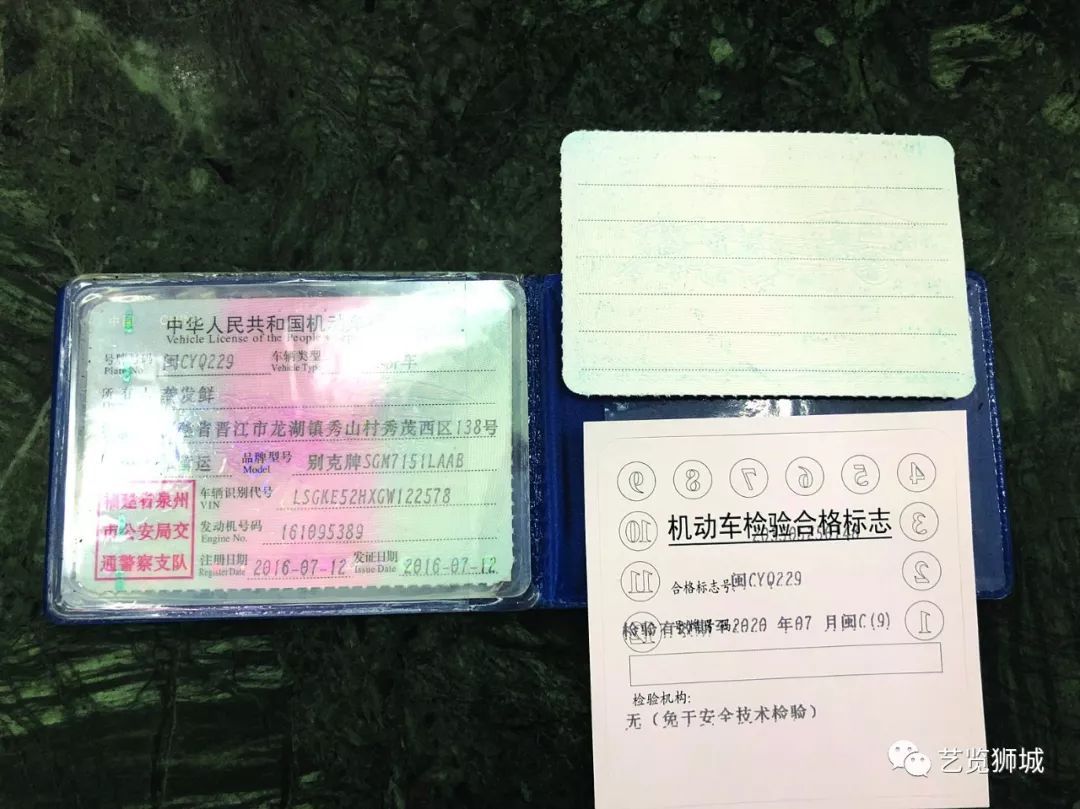 中华人民共和国机动车
Vehicle License of the People's Rep
号牌号码 Plate No. 闽CYQ229 车辆类型 Vehicle Type 轿车
所 发鲜
省晋江市龙湖镇秀山村秀茂西区138号
营运 品牌型号 Model 别克牌SGM7151LAAB
福建省泉州
市公安局交
通警察支队
车辆识别代号 VIN LSGKE52HXGW122578
发动机号码 Engine No. 161095389
注册日期 Register Date 2016-07-12 发证日期 Issue Date 2016-07-12
9 8 7 6 5 4
10 3
11 2
1
机动车检验合格标志
合格标志号 闽CYQ229
检验有 2020 年07 月闽C(9)
检验机构:
无(免于安全技术检验)
艺览狮城